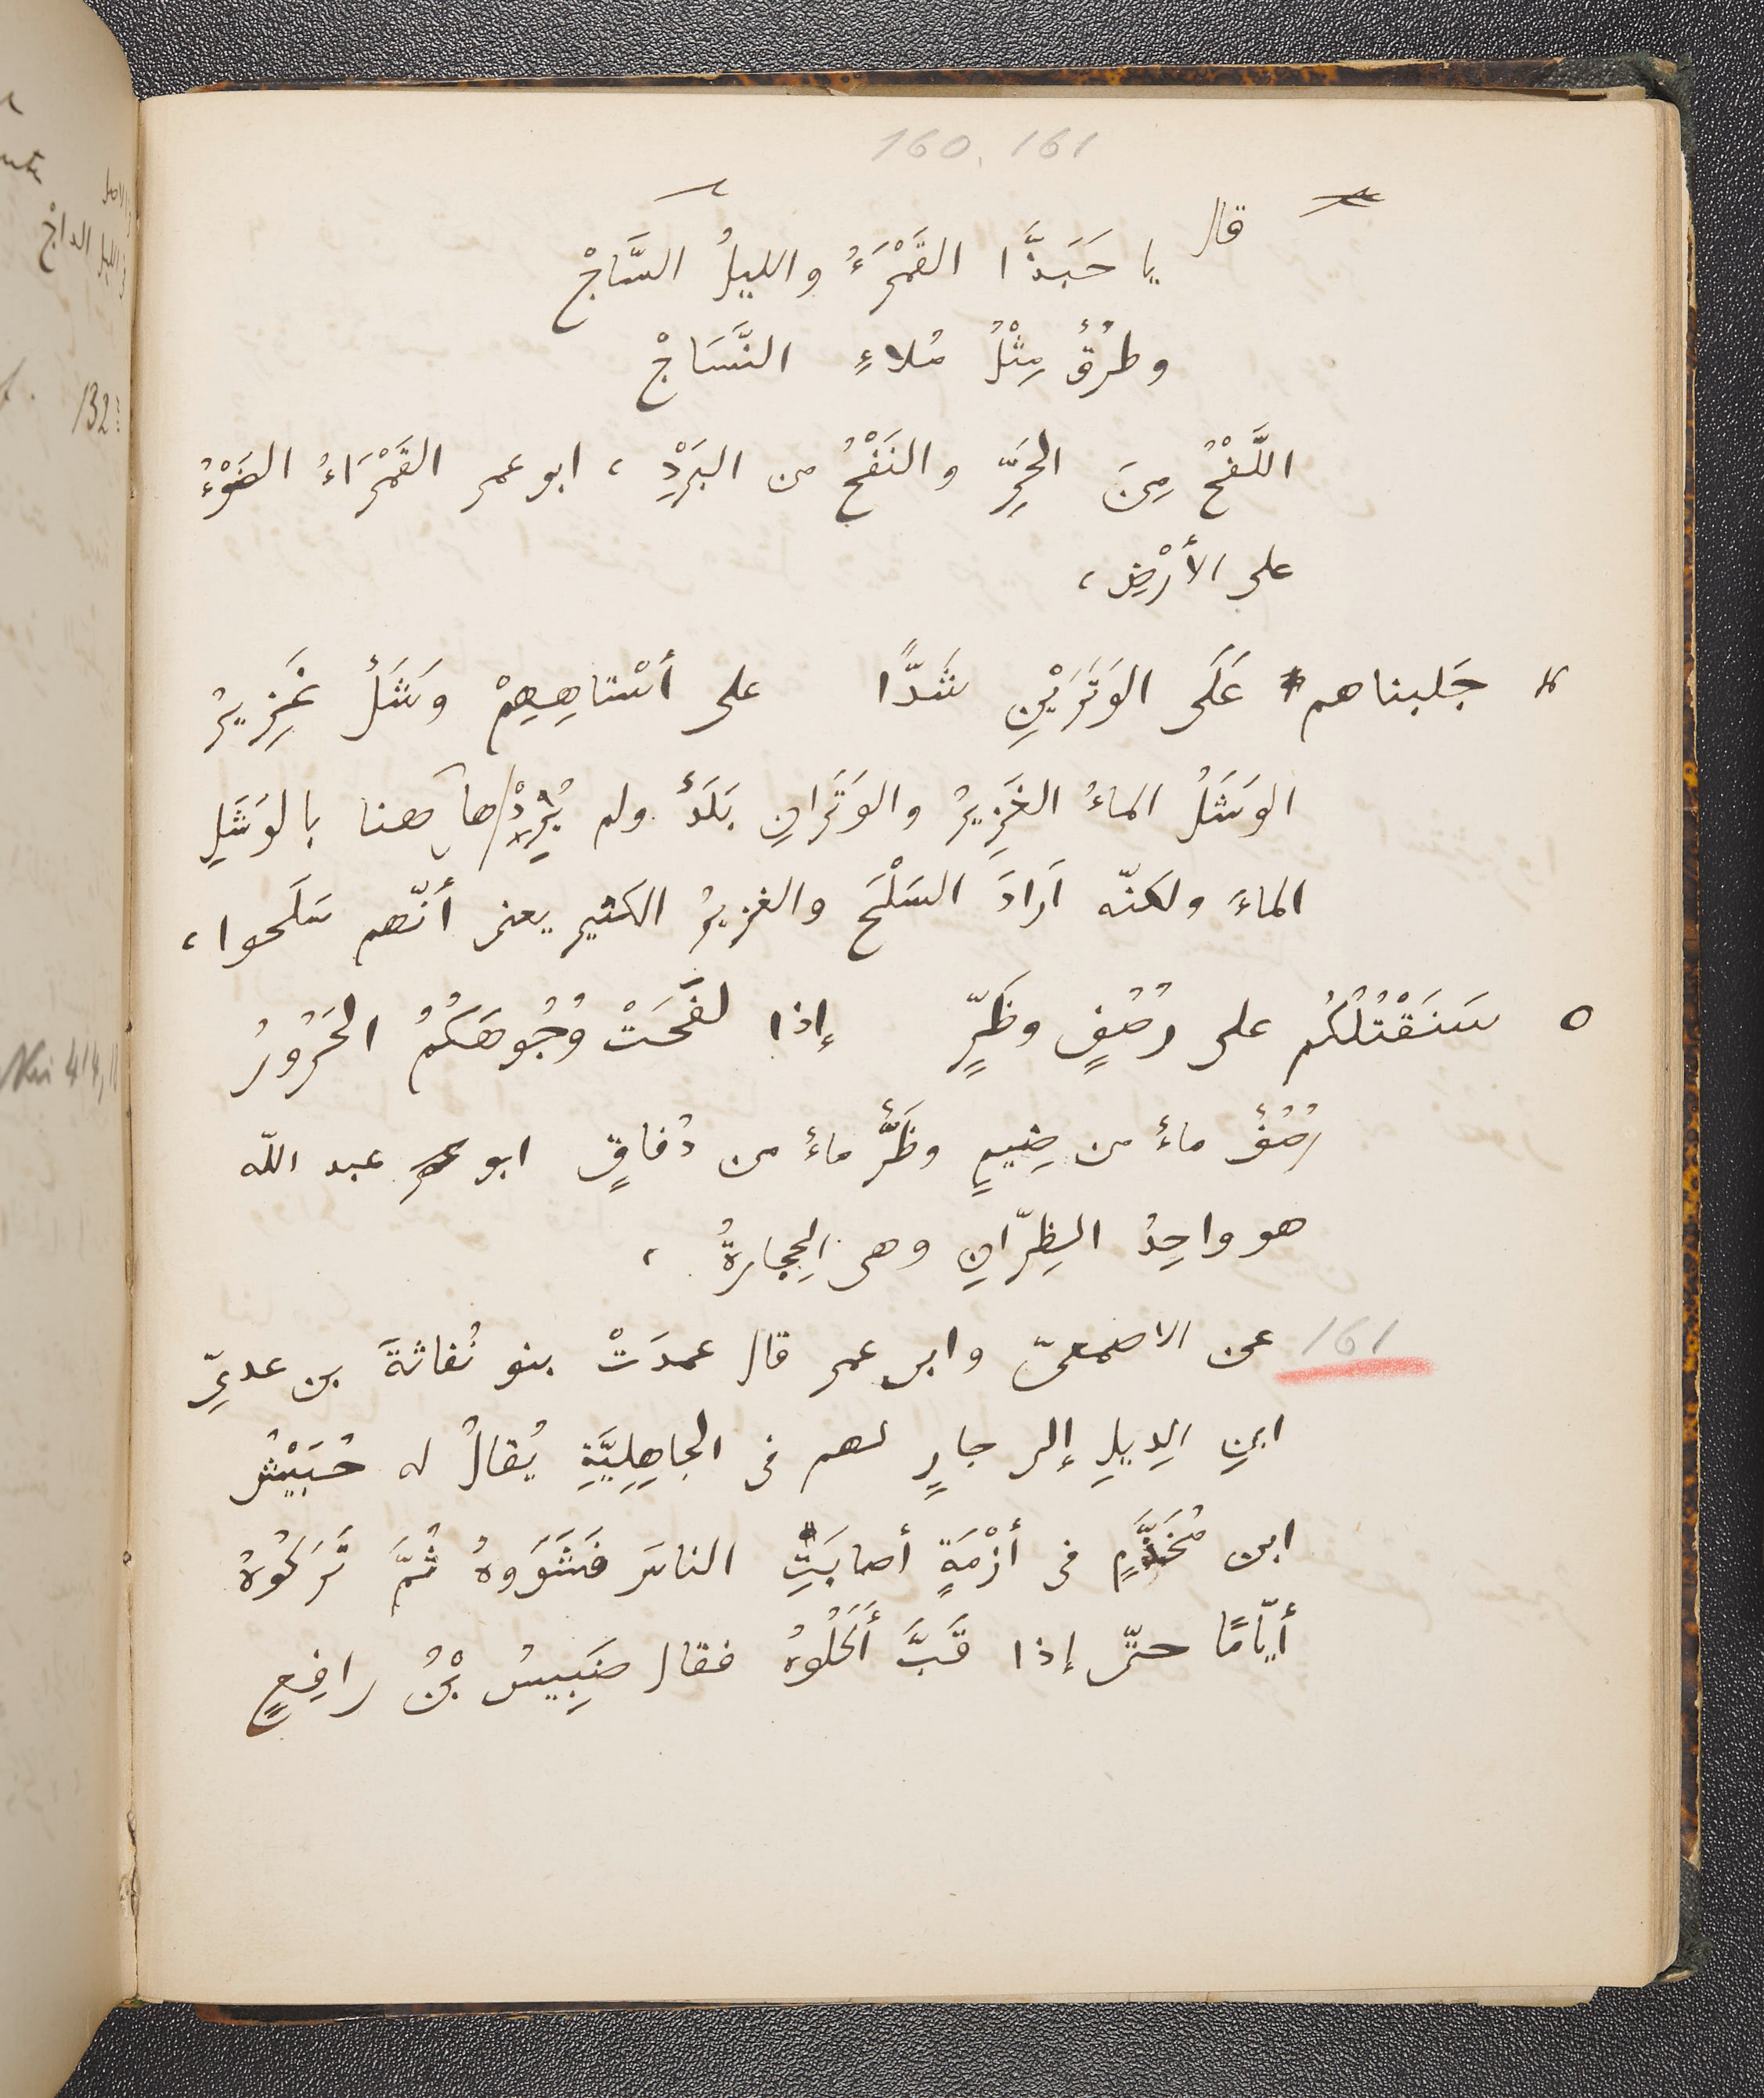 160. 161
قال يا حَبَذَّا القَمْرَءُ والليلُ السَّاجْ
وطُرُقٌ مِثْلُ مُلاءِ النَّسَاجْ
اللَّفْحُ مِنَ الحَرِّ والنَفْحُ من البَرَدِْ، ابو عمر القَمْرَاءُ الضَوْءُ
على الأرْضِ،
٤ جَلبناهم عَلَى الوَتَرَيْنِ شَدًّا على أسْتاهِهِمْ وَشَلٌ غَزِيرُ
الوَشَلُ الماءُ الغَزِيرُ والوَتَرانِ بَلَدٌ ولم يُرِدْ هاهنا بالوَشَلِ
الماءَ ولكنّه اَرادَ السَلْحَ والغزيرُ الكثير يعنى أنّهم سَلَحوا،
٥ سَنَقْتُلُكُم على رُصُفٍ وظَرٍّ إذا لفَحَتْ وُجُوهَكُمُ الحَرُورُ
رُصُفٌ ماءٌ من ضِيمٍ وظَرٌّ ماءٌ من دُفاقٍ ابو عبد اللّه
هو واحِدُ الظِرّانِ وهى الحِجارةُ،
161 عن الاصمعىّ وابى عمر قال عمدَتْ بنو نُفاثةَ بن عدىِّ
ابنِ الدِيلِ إلى جارٍ لهم فى الجاهِلِيَّةِ يُقالُ له حُبَيْشُ
ابن مُخَذَّمٍ فى أزْمَةٍ أصابَتِ الناسَ فَشَوَوهُ ثُمَّ تَرَكُوهُ
أيّامًا حتّى إذا قَبَّ أَكَلُوهُ فقال ضَبِيسُ بْنُ رافِعٍ
132